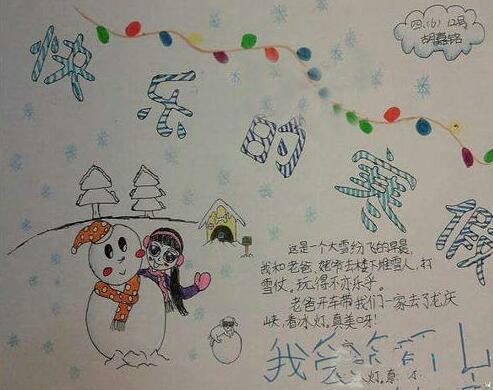 四、(6) 12号
胡嘉铭
快乐的寒假
这是一个大雪纷飞的早晨,
我和老爸、姥爷去楼下堆雪人,打
雪仗,玩得不亦乐乎。
老爸开车带我们一家去了龙庆
峡,看冰灯,真美呀!
我会
灯,真